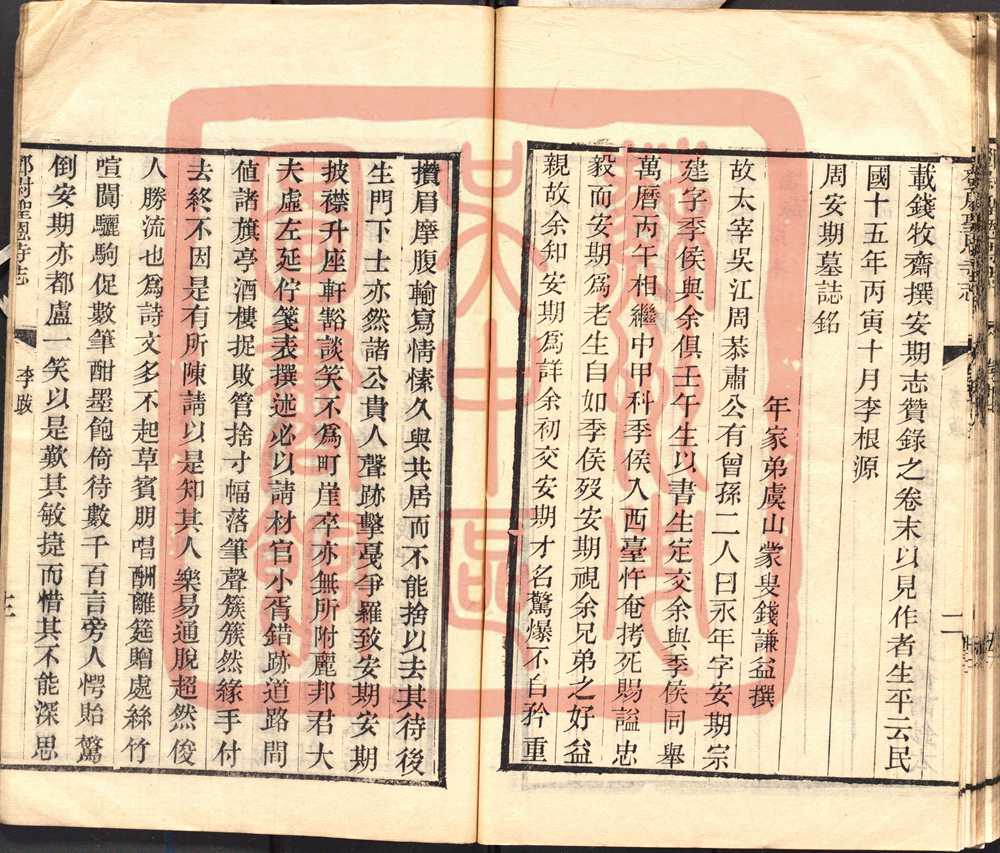 載錢牧齋撰安期志贊錄之卷末以見作者生平云民
國十五年丙寅十月李根源
周安期墓誌銘
年家弟虞山蒙叟錢謙益撰
故太宰吳江周恭肅公有曾孫二人曰永年字安期宗
建字季侯與余俱壬午生以書生定交余與季侯同舉
萬曆丙午相繼中甲科季侯入西臺忤奄拷死賜謚忠
毅而安期爲老生自如季侯歿安期視余兄弟之好益
親故余知安期爲詳余初交安期才名驚爆不自矜重
攢眉摩腹輸寫情愫久與共居而不能捨以去其待後
生門下士亦然諸公貴人聲跡擊戞爭羅致安期安期
披襟升座軒豁談笑不爲町崖卒亦無所附麗邦君大
夫虛左延佇箋表撰述必以請材官小胥錯跡道路間
値諸旗亭酒樓捉敗管捨寸幅落筆聲簇簇然緣手付
去終不因是有所陳請以是知其人樂易通脫超然俊
人勝流也爲詩文多不起草賓朋唱酬離筵贈處絲竹
喧闐驪駒促數筆酣墨飽倚待數千百言旁人愕貽驚
倒安期亦都盧一笑以是歎其敏捷而惜其不能深思
鄧尉聖恩寺志
李跋
十三